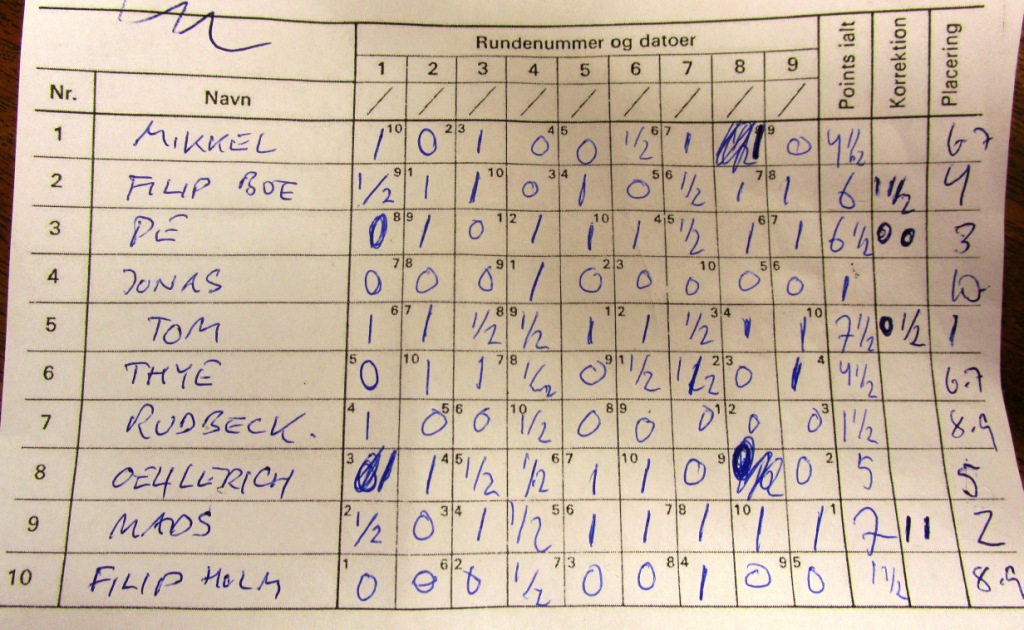 Rundenummer og datoer Points ialt Korrektion Placering
Nr. Navn 1 2 3 4 5 6 7 8 9
/ / / / / / / / /
1 MIKKEL 1 10 0 2 3 1 0 4 5 0 1/2 6 7 1 1 9 0 4 1/2 6 7
2 FILIP BOE 1/2 9 1 1 1 10 0 3 4 1 0 5 6 1/2 1 7 8 1 6 1 1/2 4
3 PÉ 0 8 9 1 0 1 2 1 1 10 1 4 5 1/2 1 6 7 1 6 1/2 0 0 3
4 JONAS 0 7 8 0 0 9 1 1 0 2 3 0 0 10 0 5 6 0 1 10
5 TOM 1 6 7 1 1/2 8 9 1/2 1 1 2 1 1/2 3 4 1 1 10 7 1/2 0 1/2 1
6 THYE 5 0 10 1 1 7 8 1/2 0 9 1 1/2 1/2 2 3 0 1 4 4 1/2 6.7
7 RUDBECK. 4 1 0 5 6 0 10 1/2 0 8 9 0 0 1 2 0 0 3 1 1/2 8.9
8 OEHLERICH 3 1 1 4 5 1/2 1/2 6 7 1 10 1 0 9 0 0 2 5 5
9 MADS 2 1/2 0 3 4 1 1/2 5 6 1 1 7 8 1 10 1 1 1 7 1 1 2
10 FILIP HOLM 1 0 0 6 2 0 1/2 7 3 0 0 8 4 1 0 9 5 0 1 1/2 8.9